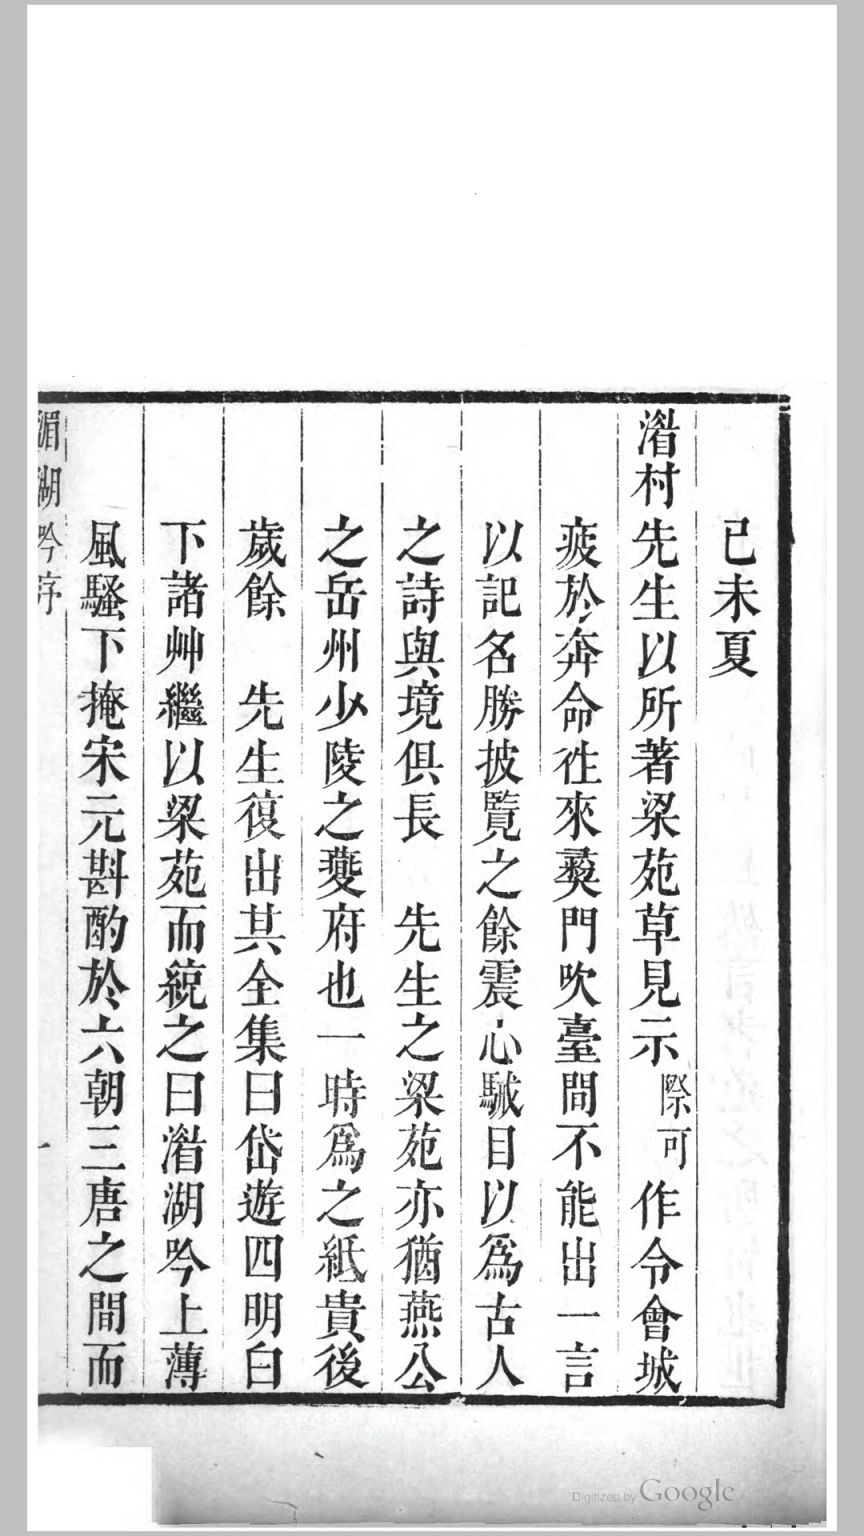 己未夏
湽村先生以所著梁苑草見示際可作令會城
疲於奔命徃來夷門吹臺間不能出一言
以記名勝披覽之餘震心駴目以爲古人
之詩與境俱長 先生之梁苑亦猶燕公
之岳州少陵之夔府也一時爲之紙貴後
歲餘 先生復出其全集曰岱遊四明白
下諸艸繼以梁苑而統之曰湽湖吟上薄
風騷下掩宋元斟酌於六朝三唐之間而
湖吟序
一
Digitized by Google